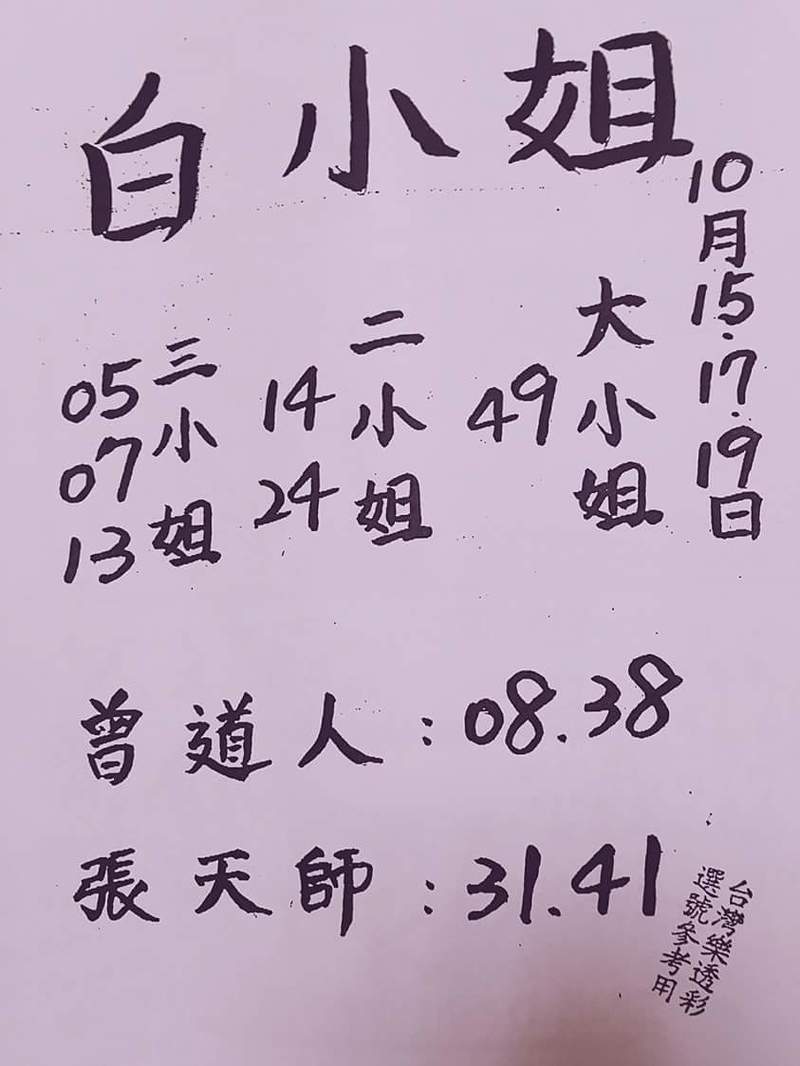 白小姐
10月15.17.19日
大小姐
49
二小姐
14
24
三小姐
05
07
13
曾道人:08.38
張天師:31.41
台灣樂透彩
選號參考用